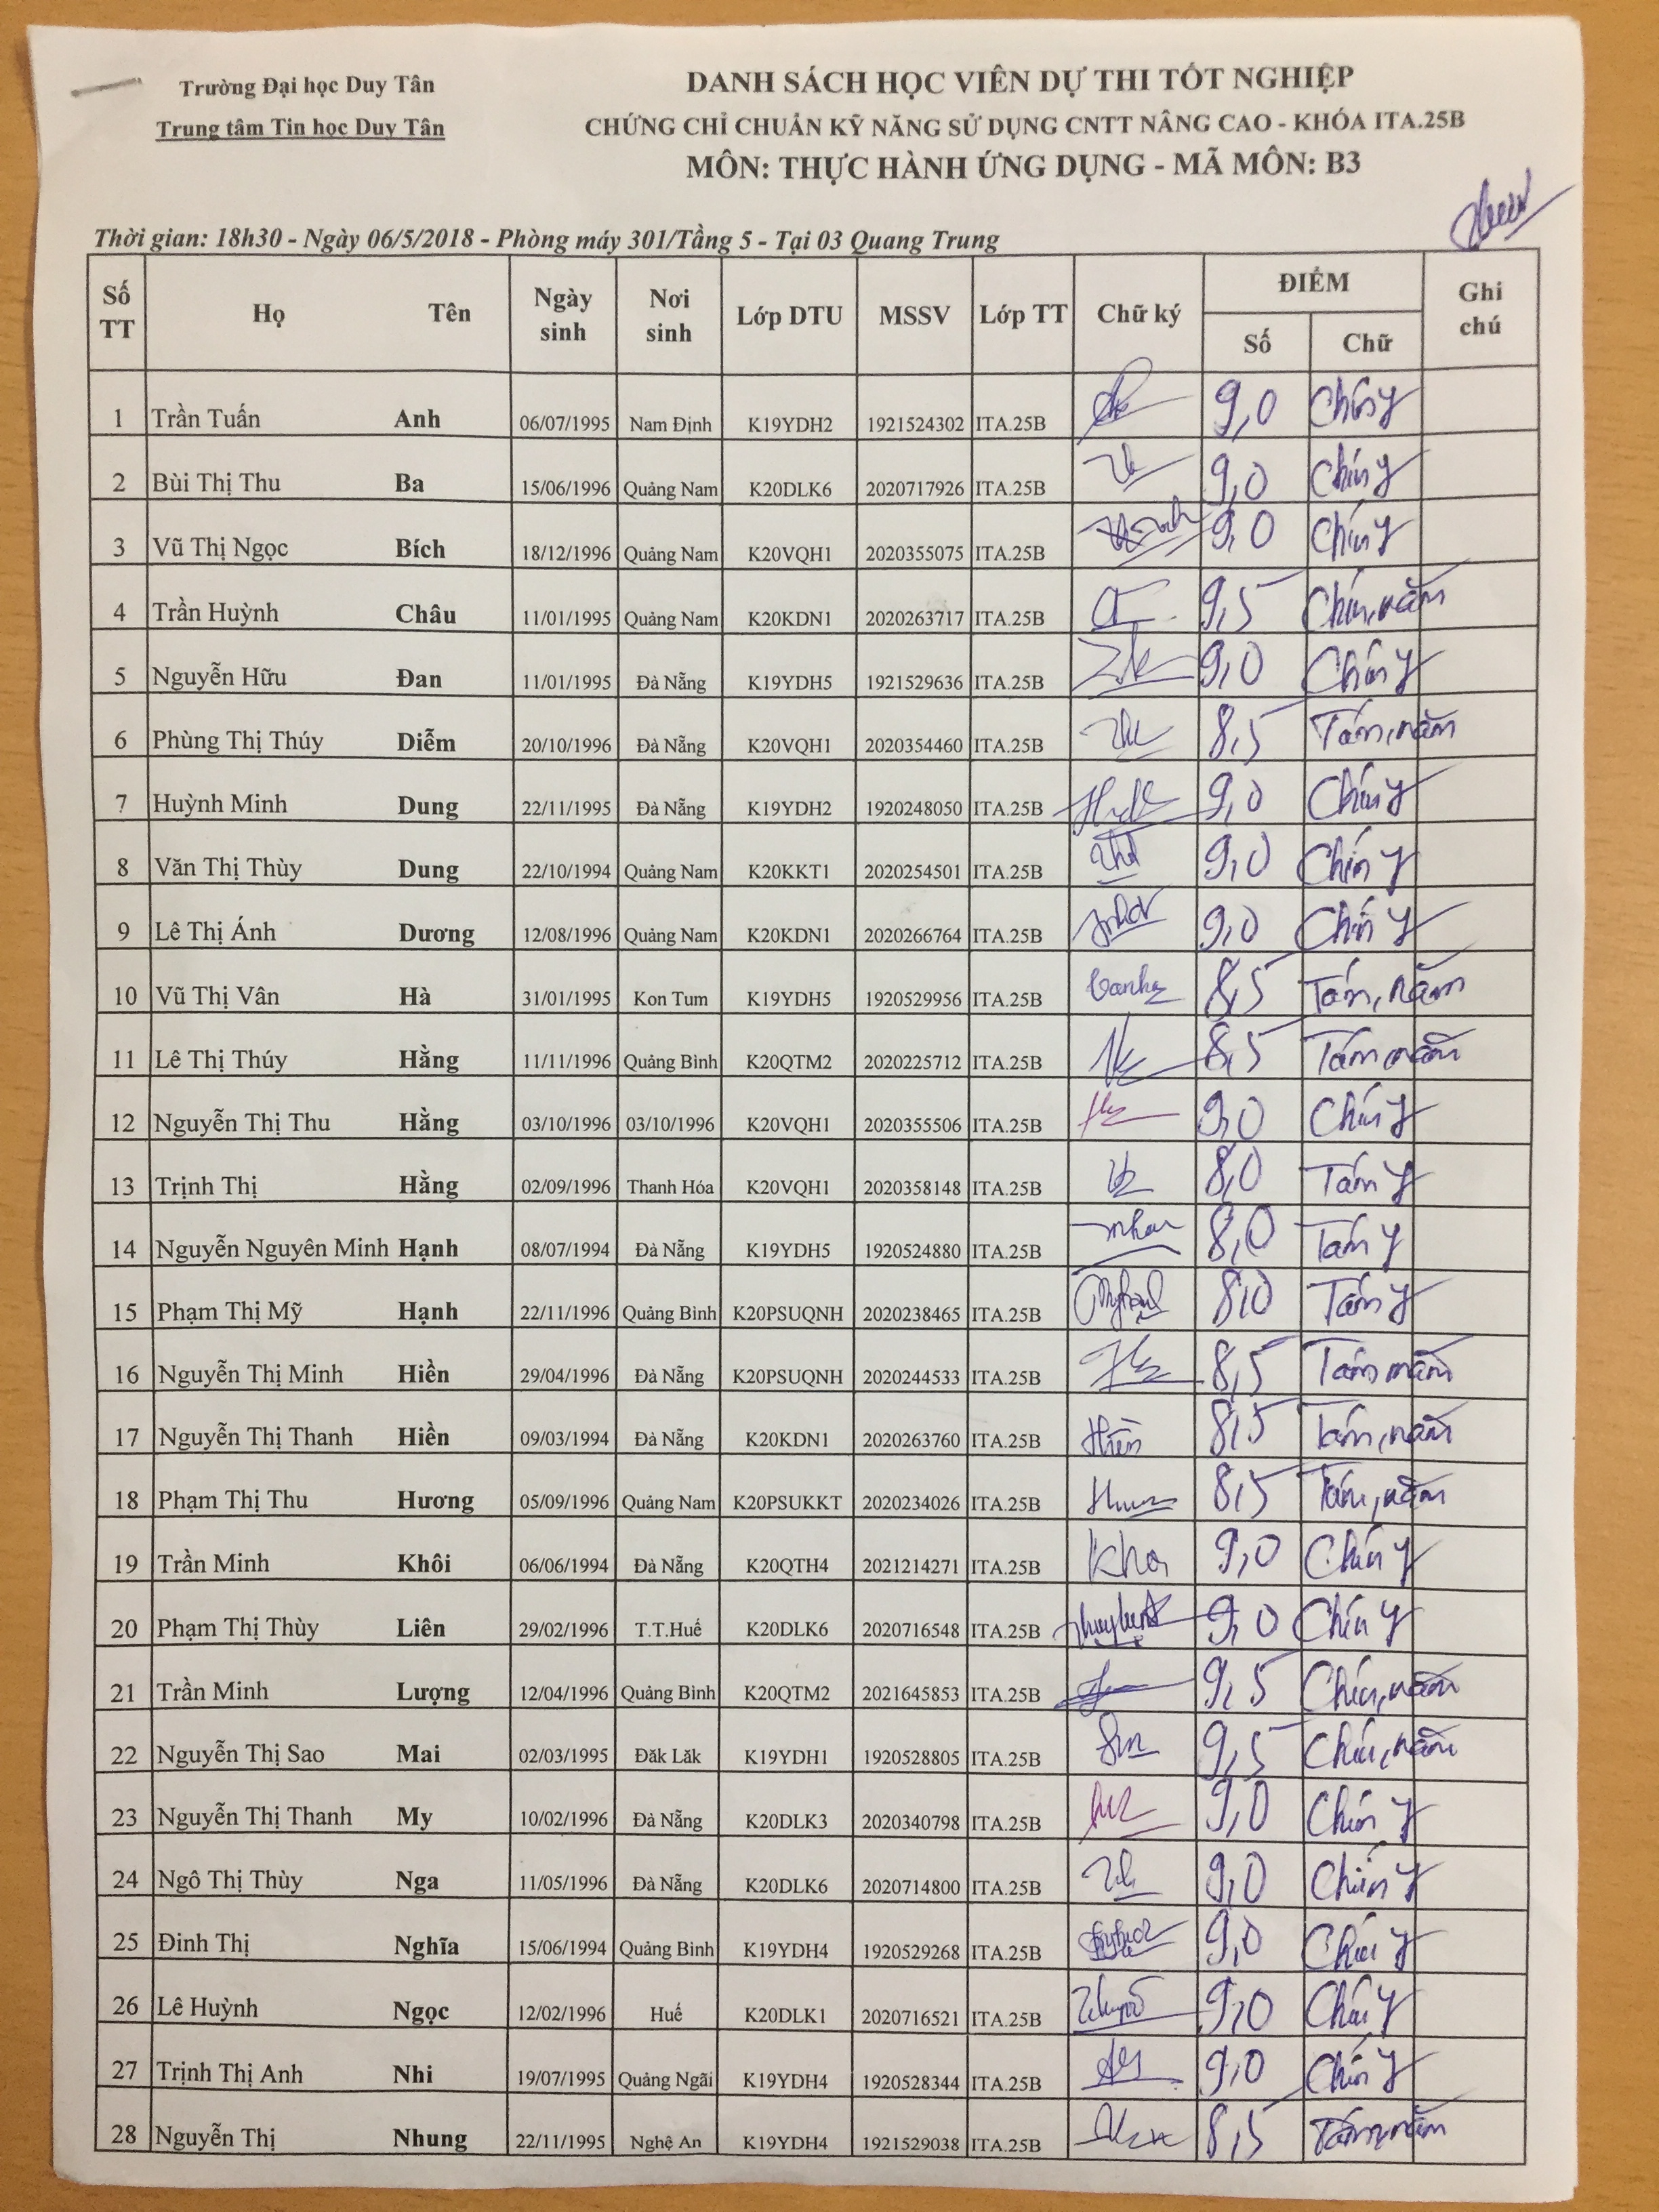 Trường Đại học Duy Tân
Trung tâm Tin học Duy Tân
DANH SÁCH HỌC VIÊN DỰ THI TỐT NGHIỆP
CHỨNG CHỈ CHUẨN KỸ NĂNG SỬ DỤNG CNTT NÂNG CAO - KHÓA ITA.25B
MÔN: THỰC HÀNH ỨNG DỤNG - MÃ MÔN: B3
Thời gian: 18h30 - Ngày 06/5/2018 - Phòng máy 301/Tầng 5 - Tại 03 Quang Trung
Số TT Họ Tên Ngày sinh Nơi sinh Lớp DTU MSSV Lớp TT Chữ ký ĐIỂM Số Chữ Ghi chú
1 Trần Tuấn Anh 06/07/1995 Nam Định K19YDH2 1921524302 ITA.25B 9,0 Chín y
2 Bùi Thị Thu Ba 15/06/1996 Quảng Nam K20DLK6 2020717926 ITA.25B 9,0 Chín y
3 Vũ Thị Ngọc Bích 18/12/1996 Quảng Nam K20VQH1 2020355075 ITA.25B 9,0 Chín y
4 Trần Huỳnh Châu 11/01/1995 Quảng Nam K20KDN1 2020263717 ITA.25B 9,5 Chín, năm
5 Nguyễn Hữu Đan 11/01/1995 Đà Nẵng K19YDH5 1921529636 ITA.25B 9,0 Chín y
6 Phùng Thị Thúy Diễm 20/10/1996 Đà Nẵng K20VQH1 2020354460 ITA.25B 8,5 Tám, năm
7 Huỳnh Minh Dung 22/11/1995 Đà Nẵng K19YDH2 1920248050 ITA.25B 9,0 Chín y
8 Văn Thị Thùy Dung 22/10/1994 Quảng Nam K20KKT1 2020254501 ITA.25B 9,0 Chín y
9 Lê Thị Ánh Dương 12/08/1996 Quảng Nam K20KDN1 2020266764 ITA.25B 9,0 Chín y
10 Vũ Thị Vân Hà 31/01/1995 Kon Tum K19YDH5 1920529956 ITA.25B 8,5 Tám, năm
11 Lê Thị Thúy Hằng 11/11/1996 Quảng Bình K20QTM2 2020225712 ITA.25B 8,5 Tám năm
12 Nguyễn Thị Thu Hằng 03/10/1996 03/10/1996 K20VQH1 2020355506 ITA.25B 9,0 Chín y
13 Trịnh Thị Hằng 02/09/1996 Thanh Hóa K20VQH1 2020358148 ITA.25B 8,0 Tám y
14 Nguyễn Nguyên Minh Hạnh 08/07/1994 Đà Nẵng K19YDH5 1920524880 ITA.25B 8,0 Tám y
15 Phạm Thị Mỹ Hạnh 22/11/1996 Quảng Bình K20PSUQNH 2020238465 ITA.25B 8,0 Tám y
16 Nguyễn Thị Minh Hiền 29/04/1996 Đà Nẵng K20PSUQNH 2020244533 ITA.25B 8,5 Tám năm
17 Nguyễn Thị Thanh Hiền 09/03/1994 Đà Nẵng K20KDN1 2020263760 ITA.25B Hiền 8,5 Tám, năm
18 Phạm Thị Thu Hương 05/09/1996 Quảng Nam K20PSUKKT 2020234026 ITA.25B 8,5 Tám, năm
19 Trần Minh Khôi 06/06/1994 Đà Nẵng K20QTH4 2021214271 ITA.25B 9,0 Chín y
20 Phạm Thị Thùy Liên 29/02/1996 T.T.Huế K20DLK6 2020716548 ITA.25B 9,0 Chín y
21 Trần Minh Lượng 12/04/1996 Quảng Bình K20QTM2 2021645853 ITA.25B 9,5 Chín, năm
22 Nguyễn Thị Sao Mai 02/03/1995 Đăk Lăk K19YDH1 1920528805 ITA.25B 9,5 Chín, năm
23 Nguyễn Thị Thanh My 10/02/1996 Đà Nẵng K20DLK3 2020340798 ITA.25B 9,0 Chín y
24 Ngô Thị Thùy Nga 11/05/1996 Đà Nẵng K20DLK6 2020714800 ITA.25B 9,0 Chín y
25 Đinh Thị Nghĩa 15/06/1994 Quảng Bình K19YDH4 1920529268 ITA.25B 9,0 Chín y
26 Lê Huỳnh Ngọc 12/02/1996 Huế K20DLK1 2020716521 ITA.25B 9,0 Chín y
27 Trịnh Thị Anh Nhi 19/07/1995 Quảng Ngãi K19YDH4 1920528344 ITA.25B 9,0 Chín y
28 Nguyễn Thị Nhung 22/11/1995 Nghệ An K19YDH4 1921529038 ITA.25B 8,5 Tám, năm